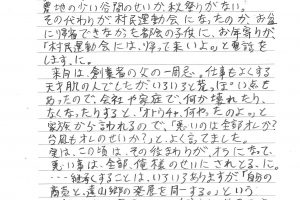 農地の少い谷間のせいか、秋祭りがない。
その代わりが村民運動会になったのか、お盆
に帰省できなかった都会の子供に、お年寄りが
「村民運動会には、帰って来いよ。」と電話を
します。に。
来月は、創業者の父の一周忌。仕事もよくする
天才肌の人でしたが、いろいろと荒っぽい点も
あったので、会社や家庭で、何か壊れたり、
なくなったりすると、「オトウチャ、何やったのよ。」と
家族から言われるので、「悪いのは全部オレか?
台風もオレのせいか?」と言ってました
私は、この頃は、その後まわりが
悪い事は、全部、俺様のせいにされとる、に。
・・・・継承することは、いろいろありますが「自らの
商売と、遠山郷の発展を同一する。」という